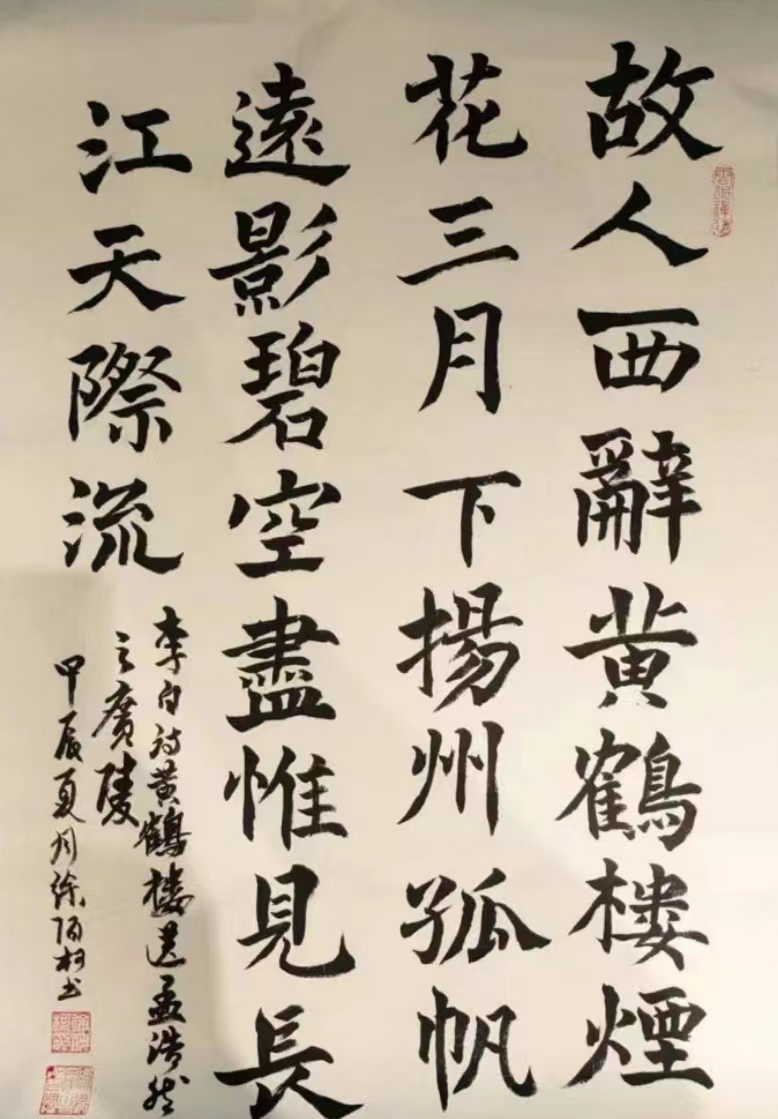 故人西辭黃鶴樓煙
花三月下揚州孤帆
遠影碧空盡惟見長
江天際流
李白詩黃鶴樓送孟浩然
之廣陵
甲辰夏月徐陌柯書